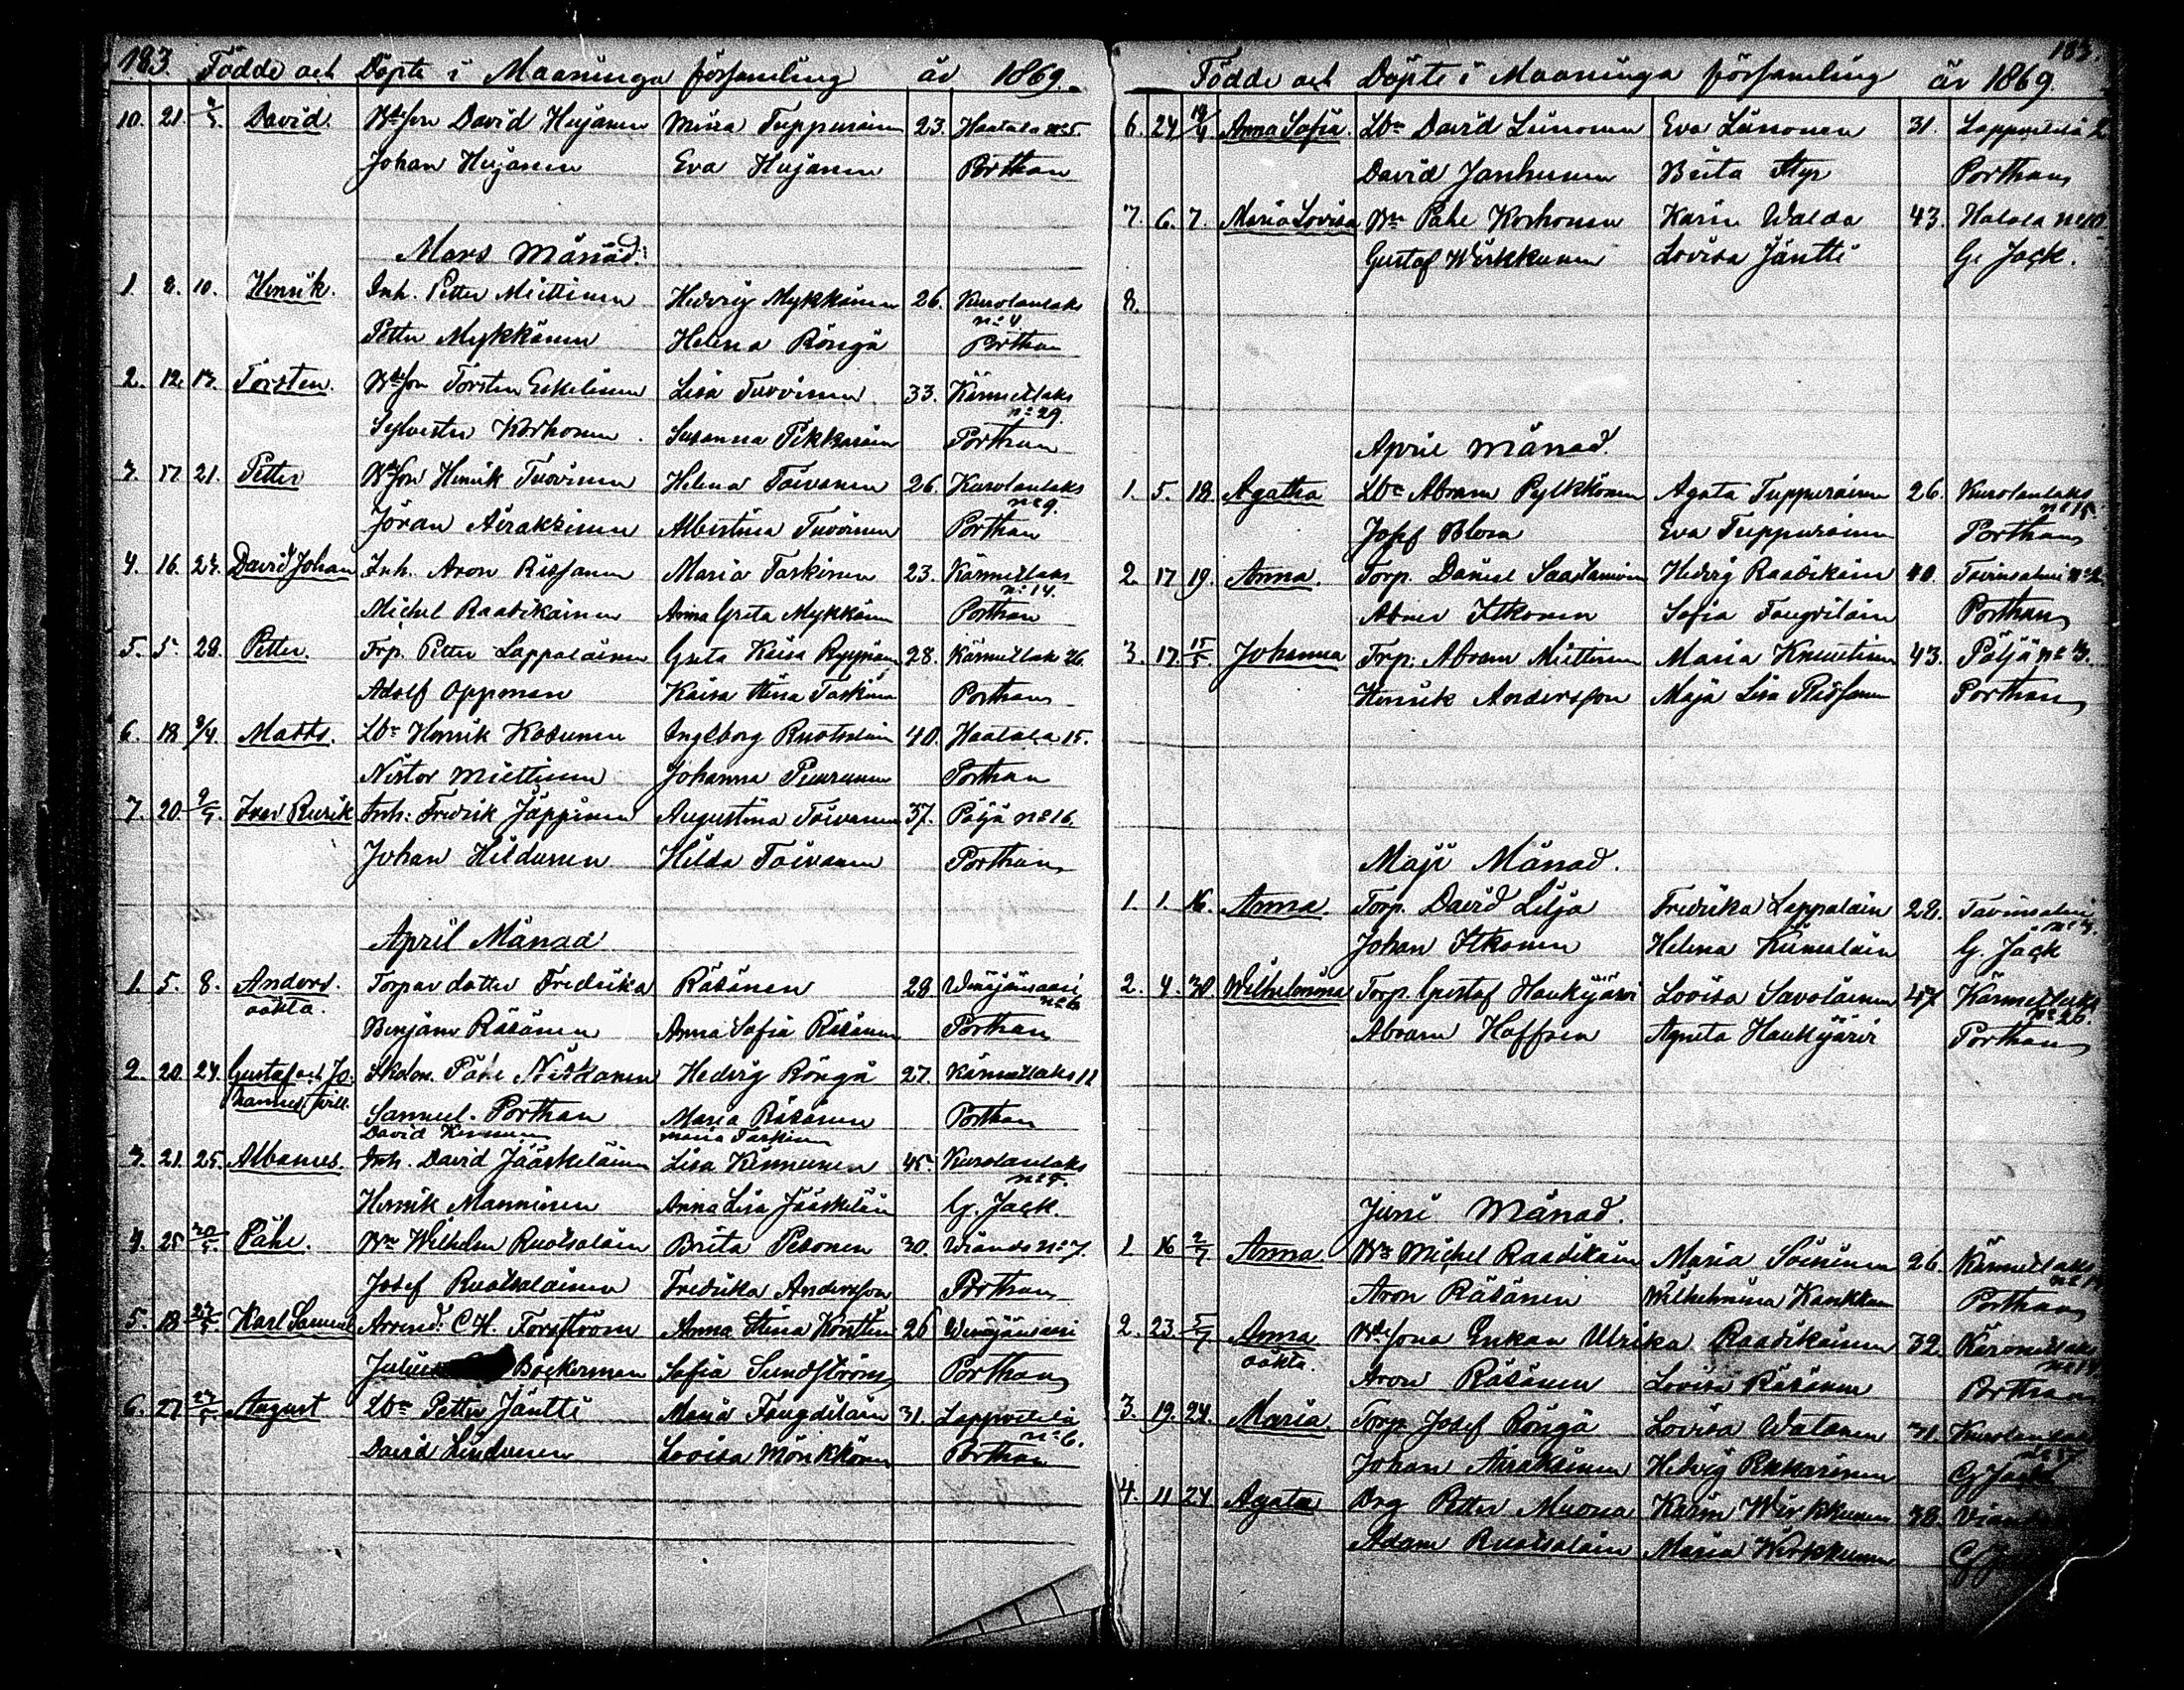 183. Födde och Döpte i Maaninga församling år 1869.
10. 21. David. Bdeson David Hujanen Miina Tuppurainen 23. Haatala No 5.
Johan Hujanen Eva Hujanen Porthan
Mars Månad.
1. 8. 10. Henrik. Inh. Petter Miettinen Hedvig Mykkänen 26. Kurolanlaks
No 4
Petter Mykkänen Helena Röngä Porthan
2. 12. 13. Torsten. Bdeson Torsten Eskelinen Lisa Tuovinen 33. Kärmetlaks
No 29.
Sylvester Korhonen Susanna Pekkarinen Porthan
3. 17 21. Petter Bdeson Henrik Tuovinen Helena Toivanen 26. Kurolanlaks
No 9.
Jöran Airaksinen Albertina Tuovinen Porthan
4. 16. 23. David Johan Inh. Aron Rissanen Maria Taskinen 23. Kärmetlaks
No 14.
Michel Raadikainen Anna Greta Mykkänen Porthan
5. 5 28. Petter. Trp. Petter Lappalainen Greta Kaisa Ryynänen 28. Kärmetlaks 26.
Adolf Oppman Kaisa Stina Taskinen Porthan
6. 18 9/4. Matts. Lbe Henrik Kasunen Ingeborg Ruotsalain 40. Haatala 15.
Nestor Miettinen Johanna Piirainen Porthan
7. 20 Ivar Rurik Inh. Fredrik Jäppinen Augustina Toivanen 37. Pöljä No 16.
Johan Hildunen Hilda Toivanen Porthan
April Månad
1. 5. 8. Anders. Torpar dotter Fredrika Räsänen 28. Winäjänsaari
oäkta. No 6
Benjam Räsänen Anna Sofia Räsänen Porthan
2. 20. 24. Gustaf och Jo- Skolm. Påhl Niskanen Hedvig Röngä 27. Kärmetlaks 11
hannes tvill. Samuel Porthan Maria Räsänen Porthan
David Kinnunen Maria Taskinen
3. 21. 25. Albanus. Inh. David Jääskeläinen Lisa Kinnunen 45. Kurolanlaks
Henrik Manninen Anna Lisa Jääskeläin G. Jack.
4. 25 Påhl. Bde Wilhelm Ruotsalain Brita Pesonen 30. Wiands No 7
Josef Ruotsalainen Fredrika Andersson Porthan
5. 18 Karl Samuel Arrend. C.H. Forsström Anna Stina Korsttin 26 Winäjänsaari
Julius Bockerman Sofia Sundström Porthan
6. 27 August Lbe Petter Jäntti Maria Tougdilain 31. Lappvetelä
No 6.
David Lindunen Lovisa Mönkkönen Porthan
183.
Födde och Döpte i Maaninga församling år 1869.
6. 24 Anna Sofia. Lbe David Leinonen Eva Leinonen 31. Lappvetelä 2
David Janhunen Brita Styr Porthan
7. 6. 7. Maria Lovisa Bde Påhl Korhonen Karin Walda 43. Hatala No 10.
Gustaf Wirkkunen Lovisa Jäntti G. Jack.
8.
April Månad.
1. 5. 18. Agatha Lbe Abram Pylkkönen Agata Tuppurainen 26. Kurolanlaks
No 15.
Josef Blom Eva Tuppurainen Porthan
2. 17 19. Anna. Torp. Daniel Saastamoinen Hedvig Raadikain 40. Tavinsalmi No 2
Abner Itkonen Sofia Tougdilain Porthan
3. 17. 15/5 Johanna Trp. Abram Miettinen Maria Knuutinen 43. Pöljä No 13.
Henrik Andersson Maja Lisa Rissanen Porthan
Maji Månad.
1. 1. 16. Anna. Torp. David Lilja Fredrika Lappalain 28. Tavinsalmi
Johan Itkonen Helena Kumulain G. Jack
2. 4. 30. Wilhelmina Torp. Gustaf Haukijärvi Lovisa Savolainen 47. Kärmetlaks
No 26.
Abram Hoffren Agneta Haukijärvi Porthan
Juni Månad.
1. 16 2/7 Anna. Bde Michel Raadikain Maria Soininen 26. Kärmetlaks
Aron Räsänen Wilhelmina Kankkun Porthan
2. 23. 5/7 Anna Bdesons Enkan Ulrika Raadikainen 32. Kärmetlaks
oäkta. No 14
Aron Räsänen Lovisa Räsänen Porthan
3. 19. 24. Maria. Torp. Josef Röngä Lovisa Watanen 31. Kurolanlaks
Johan Airaksinen Hedvig Pekkarinen G. Jack
4. 11 24 Agata Drg Petter Muona Karin Wirkkunen 38. Viand
Adam Ruotsalain Maria Wirkkunen G. J